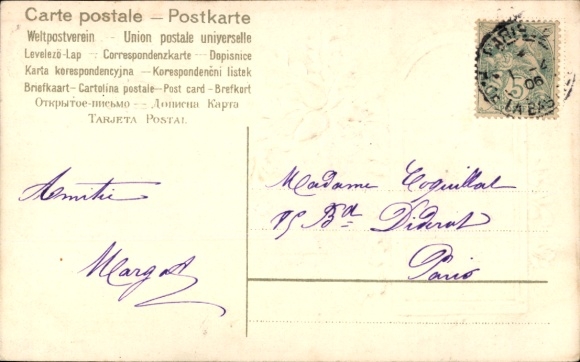 Carte postale — Postkarte
Weltpostverein - Union postale universelle
Levelező-Lap - Correspondenzkarte - Dopisnice
Karta korespondencyjna - Korespondenční listek
Briefkaart - Cartolina postale - Post card - Brefkort
Открытое-письмо - Дописна Карта
Tarjeta Postal
PARIS
06
5
Amitié
Margot
Madame Coquillat
Bd Diderot
Paris